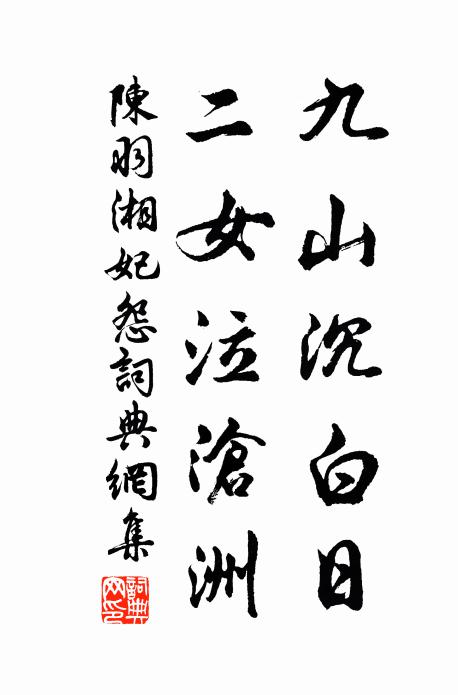 九山沉白日
二女泣滄洲
陳羽湘妃怨詞典網集
詞典网印